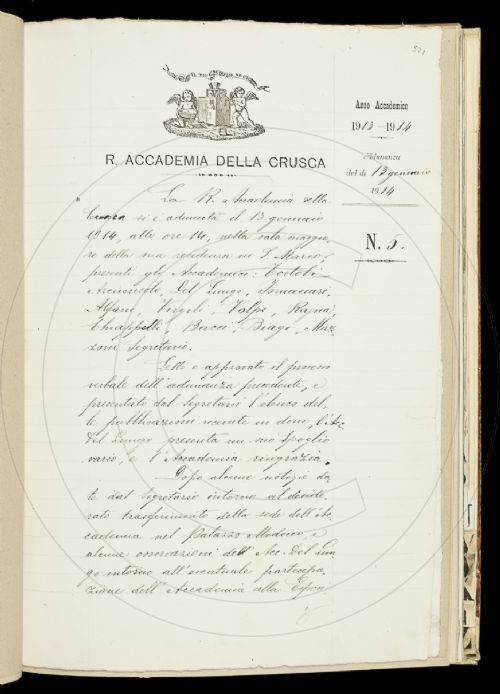 521
IL PIÙ BEL FIOR NE COGLIE
R. ACCADEMIA DELLA CRUSCA
Anno Accademico
1913-1914
Adunanza
del dì 13 gennaio
1914
N. 5.
La R. Accademia della
Crusca si è adunata il 13 gennaio
1914, alle ore 14, nella sala maggio-
re della sua residenza in S. Marco,
presenti gli Accademici: Tortoli
Arciconsolo, Del Lungo, Tommasi
Alfani, Virgili, Volpi, Rajna,
Chiappelli, Bacci, Biagi, Maz-
zoni Segretario.
Letto e approvato il processo
verbale dell'adunanza precedente, e
presentato dal Segretario l'elenco del-
le pubblicazioni ricevute in dono, l'Acc.
Del Lungo presenta un suo spoglio
vario, e l'Accademia ringrazia.
Dopo alcune notizie da-
te dal Segretario intorno al deside-
rato trasferimento della sede dell'Ac-
cademia nel Palazzo Mediceo, e
alcune osservazioni dell'Acc. Del Lun-
go intorno all'eventuale partecipa-
zione dell'Accademia alla Espo-